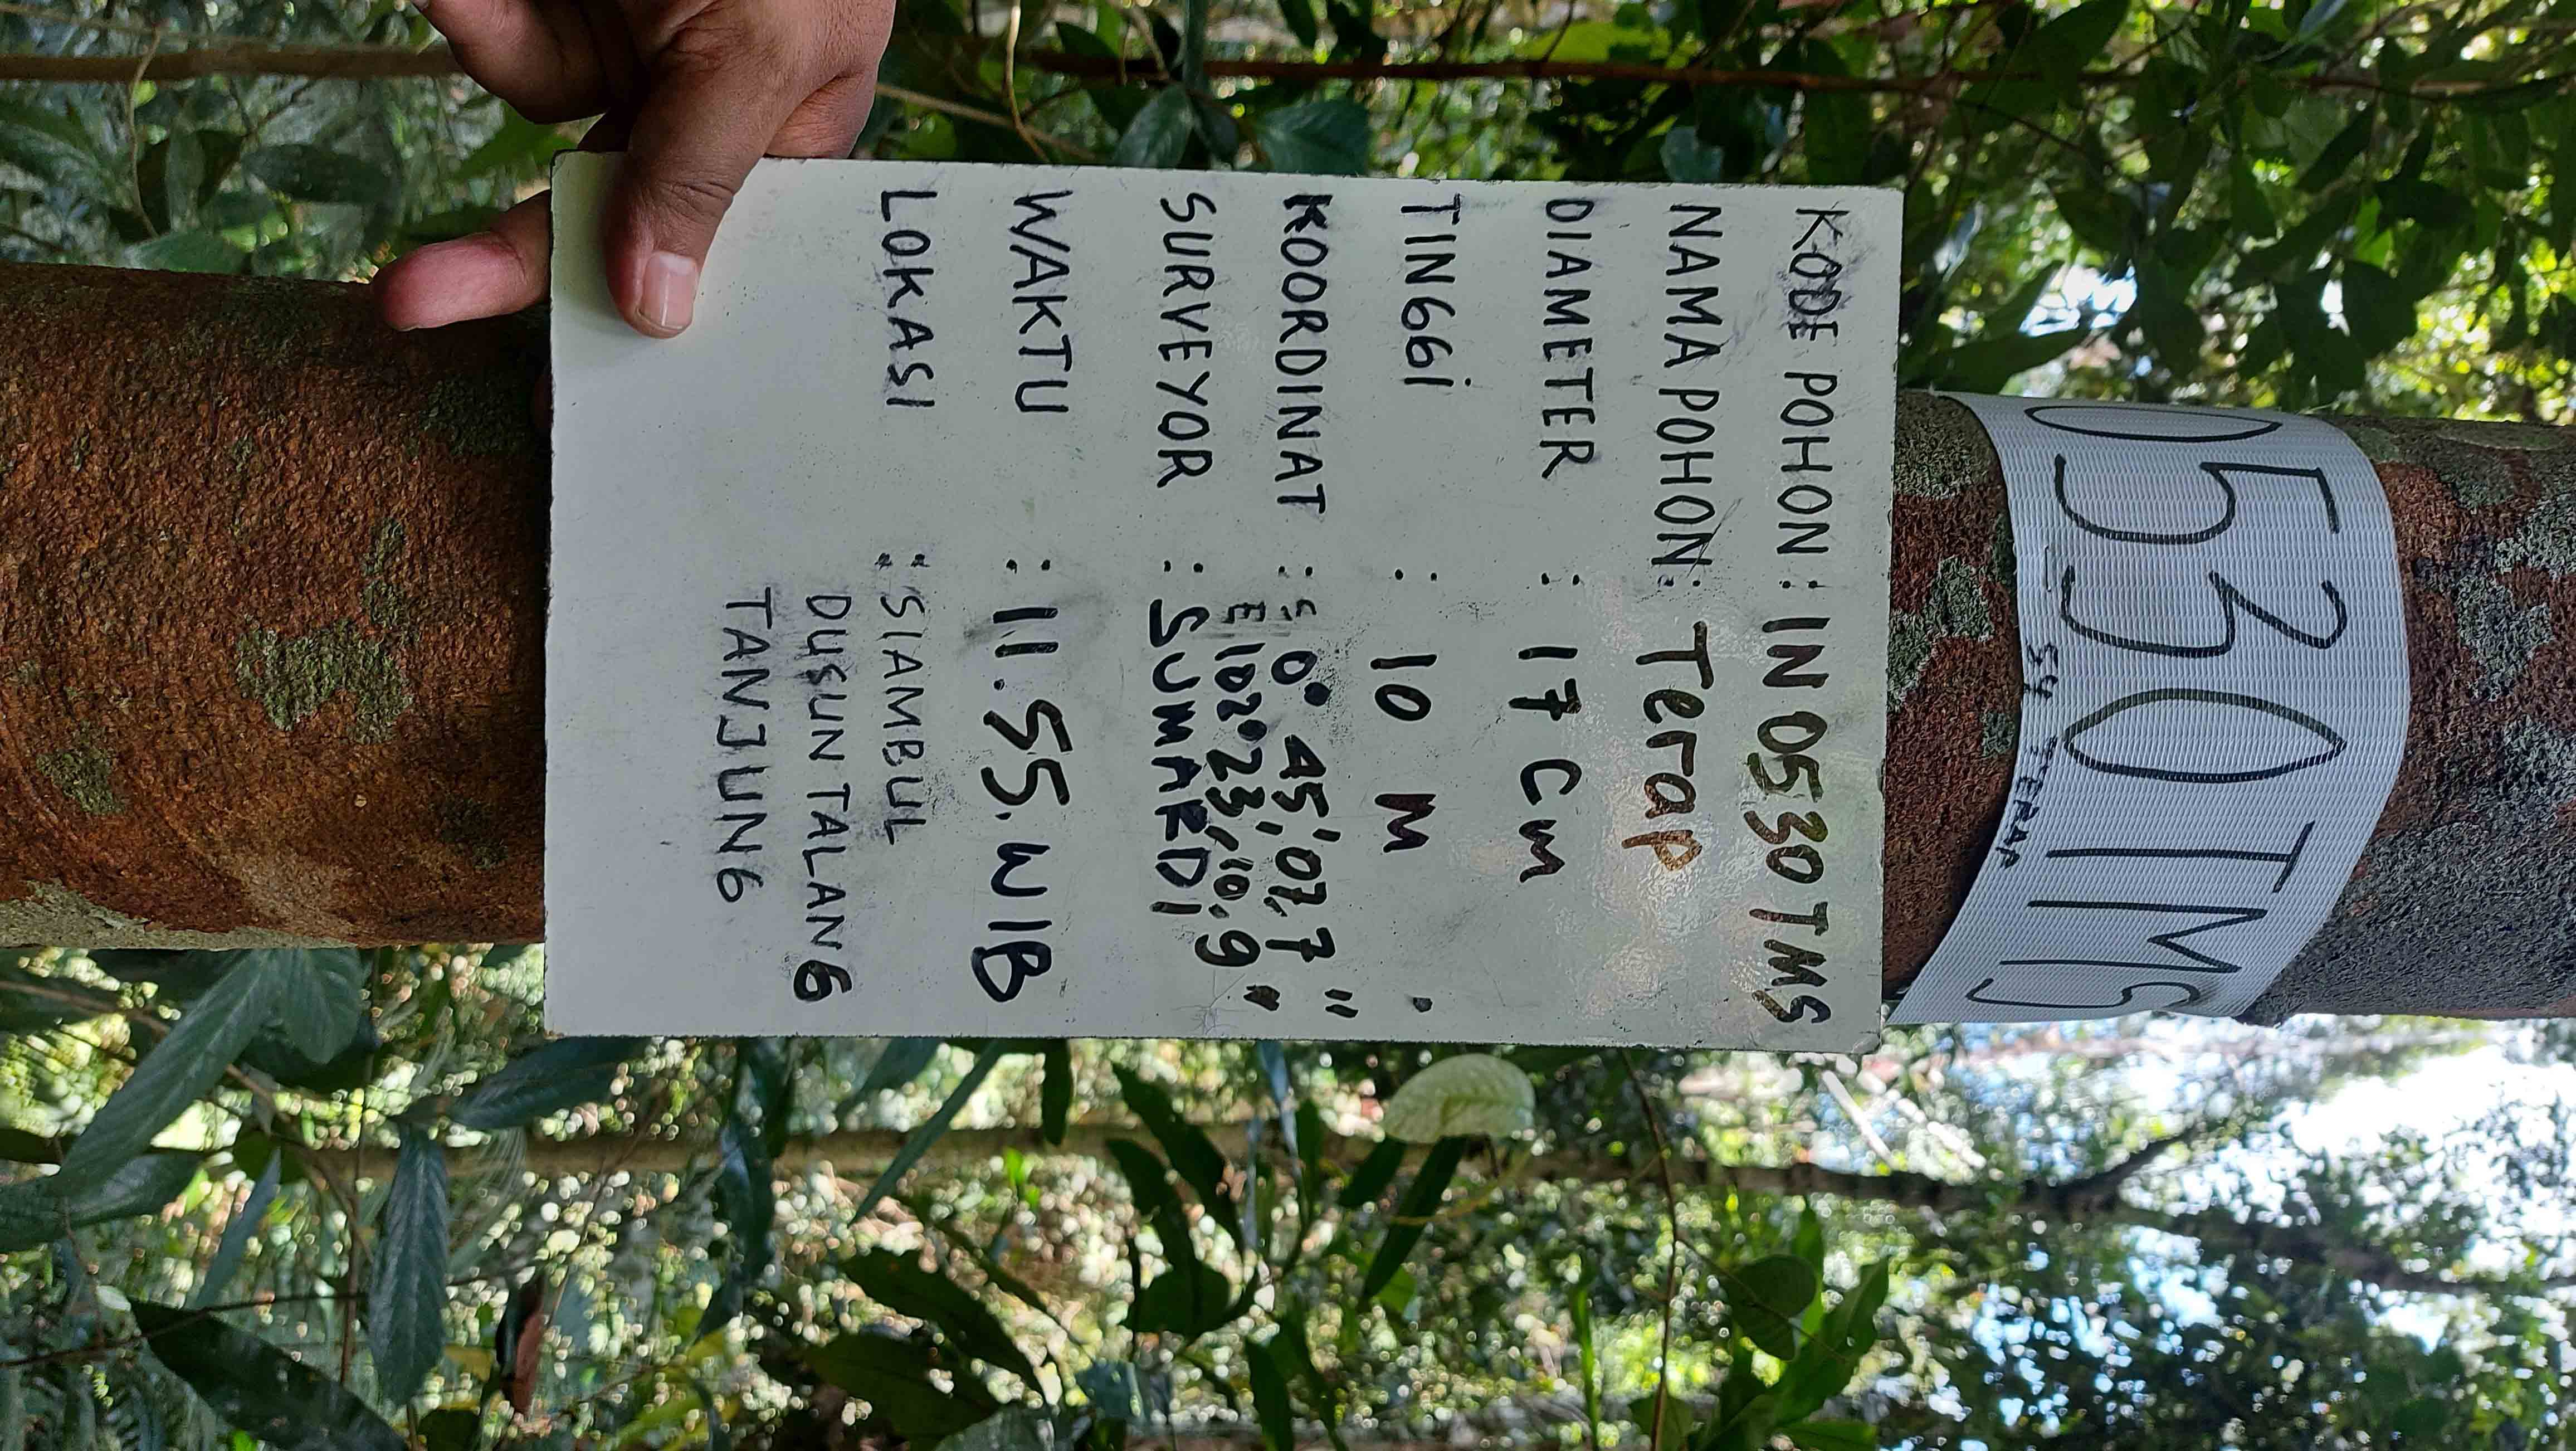 0530 TMS
54 TERAP
KODE POHON : IN 0530 TMS
NAMA POHON : Terap
DIAMETER : 17 Cm
TINGGi : 10 M
KOORDINAT : S 0° 45', 07,7"
E 102° 23, 10.9"
SURVEYOR : SUMARDI
WAKTU : 11.55. WIB
LOKASI : SIAMBUL
DUSUN TALANG
TANJUNG